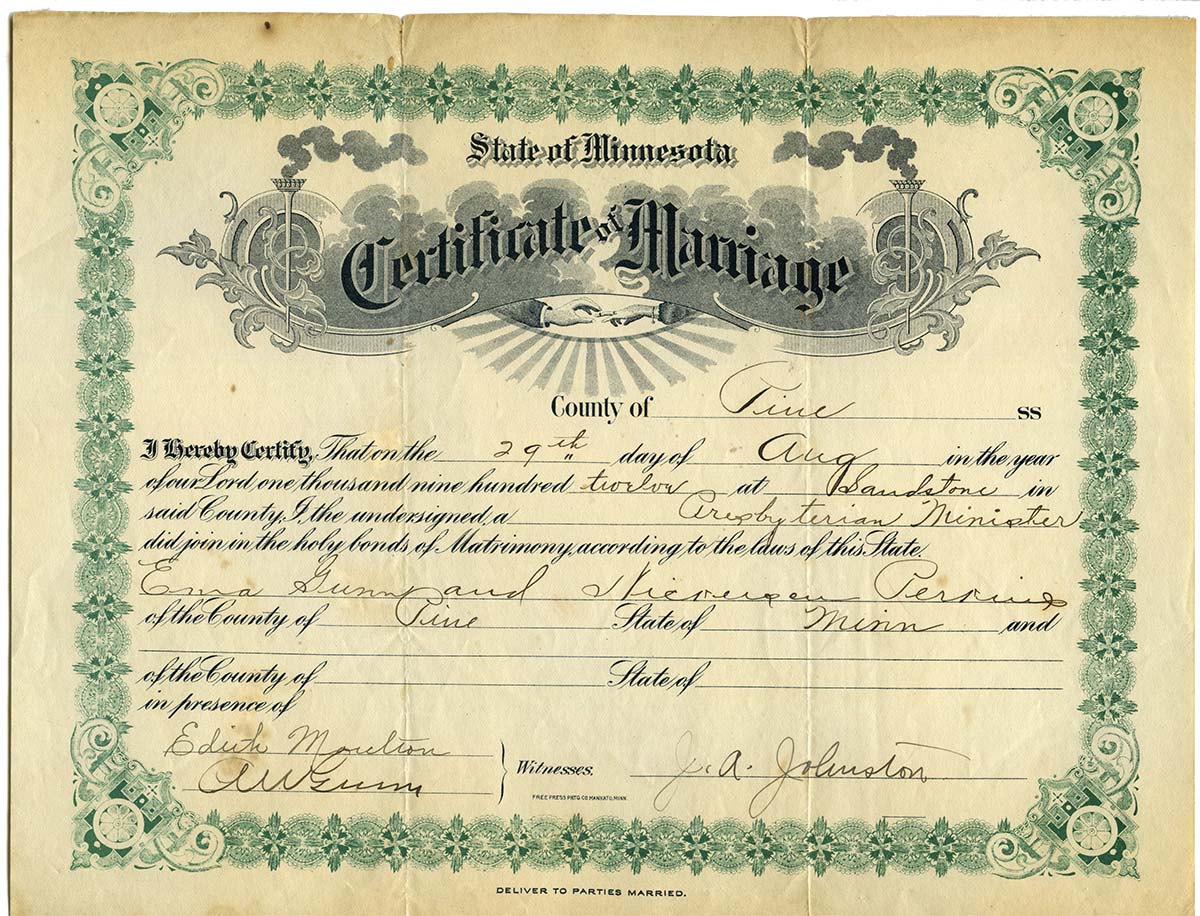 State of Minnesota
Certificate of Marriage
County of Pine SS
I Hereby Certify, That on the 29th day of Aug in the year
of our Lord one thousand nine hundred twelve at Sandstone in
said County, I, the undersigned, a Presbyterian Minister
did join in the holy bonds of Matrimony, according to the laws of this State.
Ema Gunn and Nickersen Perkins
of the County of Pine State of Minn and
of the County of State of
in presence of
Edith Moulton
A W Gunn
Witnesses.
J. A. Johnston
FREE PRESS PRTG CO MANKATO, MINN.
DELIVER TO PARTIES MARRIED.